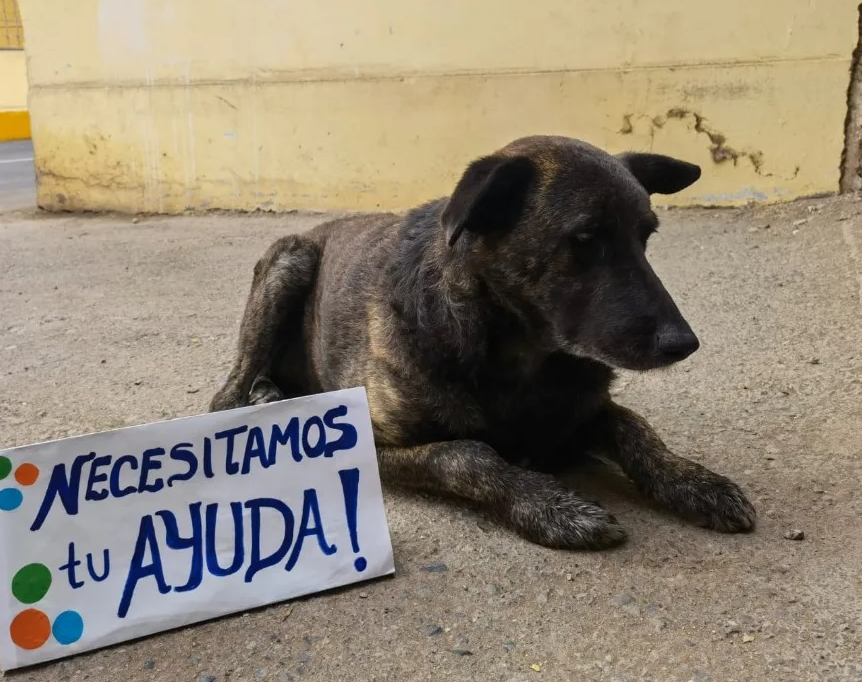 NECESITAMOS
tu AYUDA!